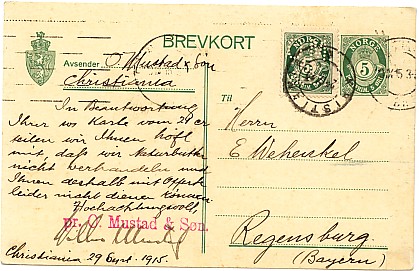 BREVKORT
Avsender O. Mustad & Søn
Christiania
In Beantwortung
Ihrer w. Karte vom 24 er
teilen wir Ihnen höfl
mit, dass wir Naturbutter
nicht verhandeln und
Ihnen deshalb mit Offerte
leider nicht dienen können.
Hochachtungsvoll
pr. O. Mustad & Søn.
Christiania 29 Sept. 1915.
Til
Herrn
E Weheuskel
Regensburg
(Bayern)
NORGE
5